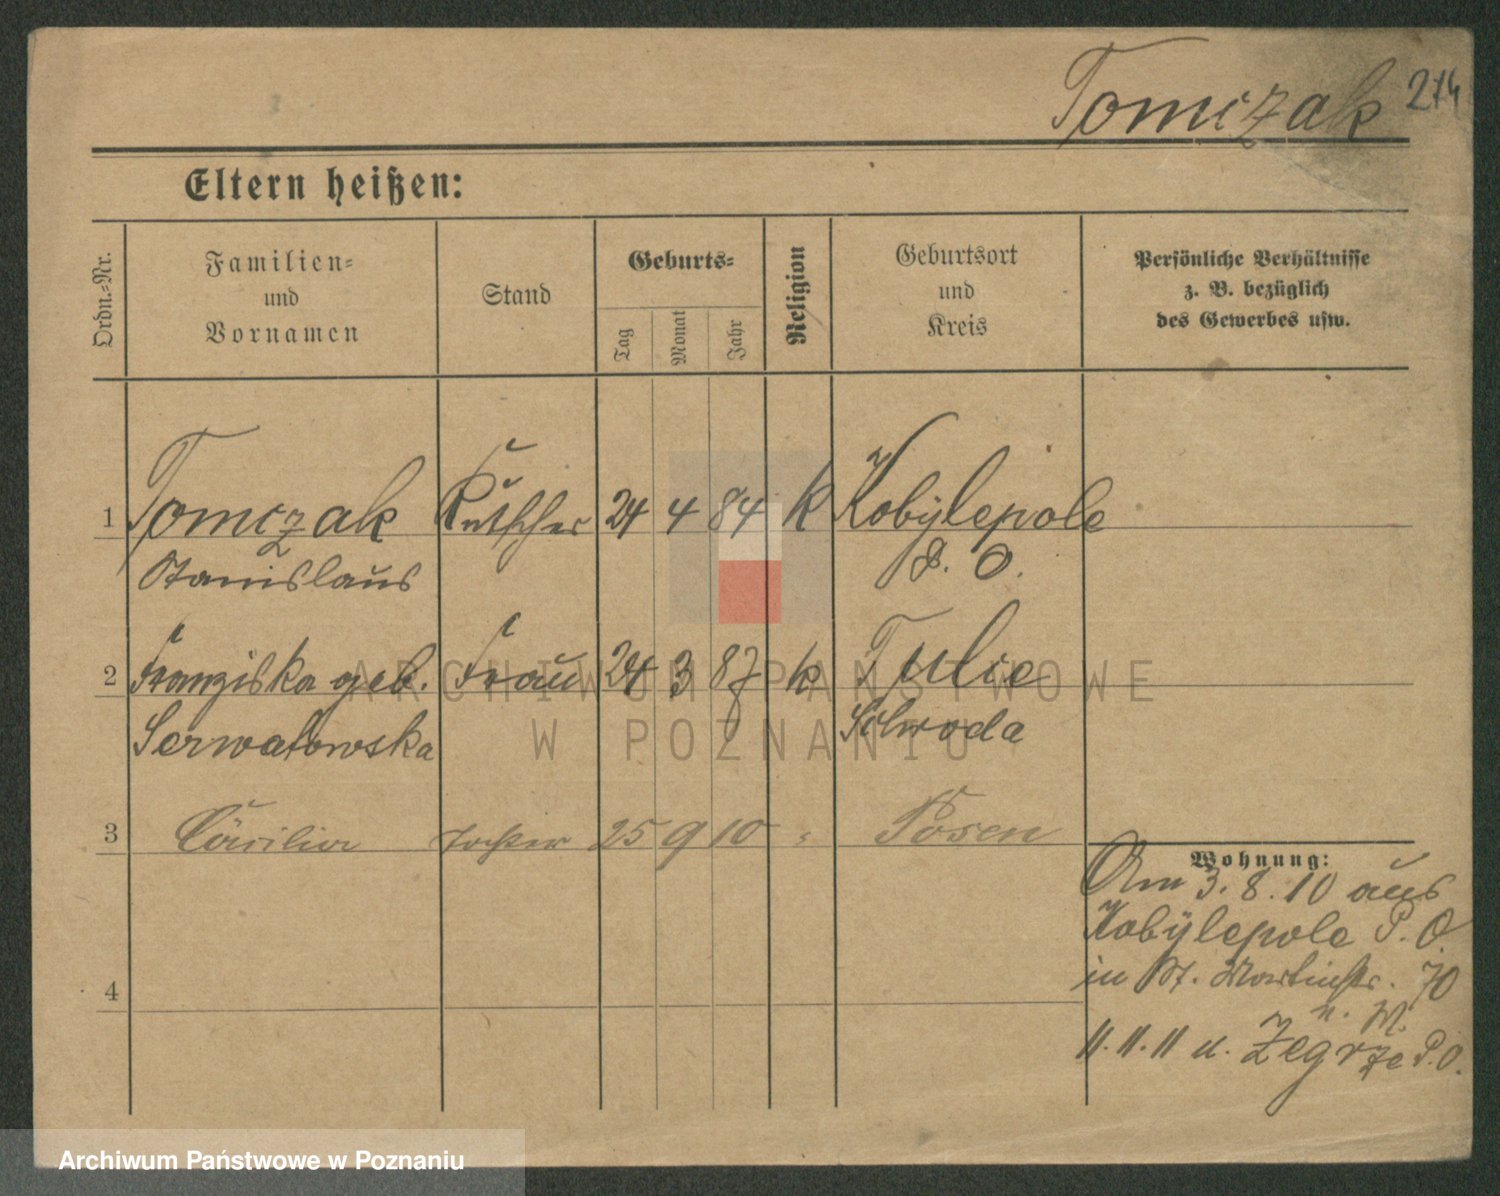 Tomczak 214
Eltern heißen:
Ordn.-Nr.
Familien- und Vornamen
Stand
Geburts-
Tag
Monat
Jahr
Religion
Geburtsort und Kreis
Persönliche Verhältnisse
z. B. bezüglich
des Gewerbes usw.
1 Tomczak Kutscher 24 4 84 k Kobylepole
Stanislaus P. O.
2 Franziska geb. Frau 24 3 87 k Tulce
Serwatowska Schroda
3 Cäcilia Tochter 25 9 10 " Posen
Wohnung:
Am 3. 8. 10 aus
Kobylepole P. O.
in St. Martinstr. 70
n. W.
4
11. 11. 11 u. Zegrze P. O.
ARCHIWUM PAŃSTWOWE
W POZNANIU
Archiwum Państwowe w Poznaniu